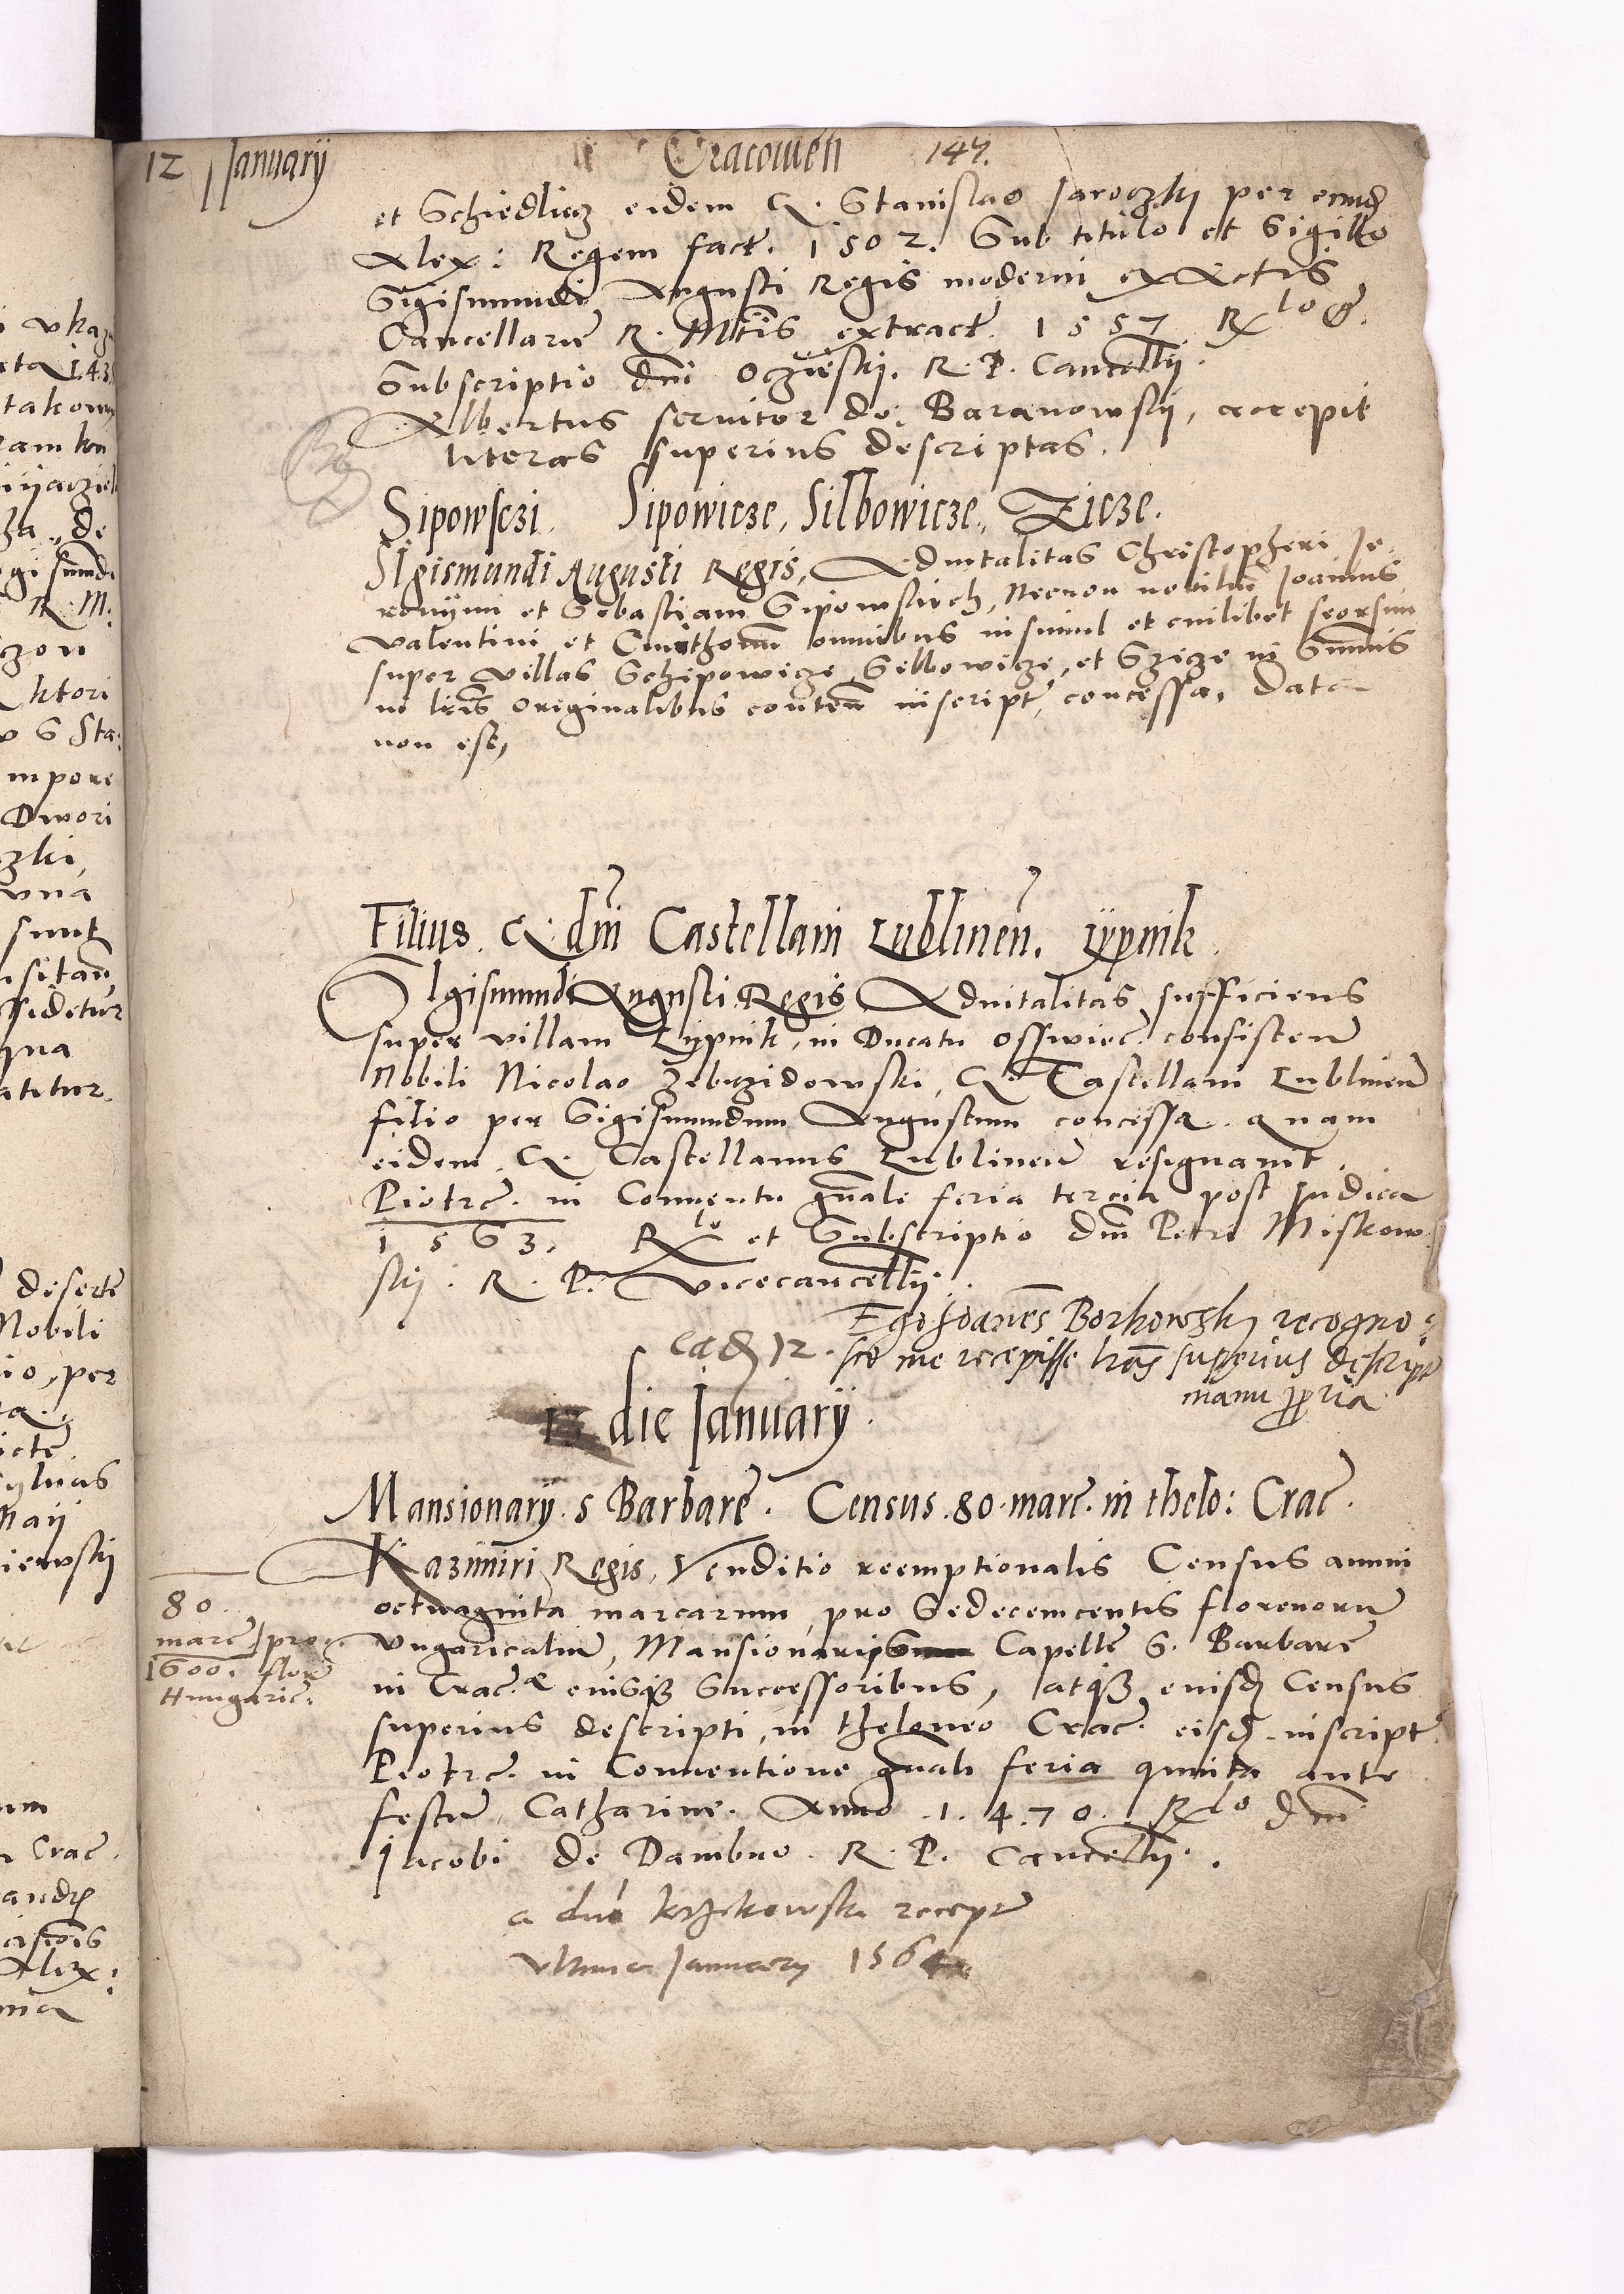 12 January Cracowen 147.
et Schiedlicz eidem G. Stanislao Jaroczki per eund
Alex: Regem fact. 1502. Sub titulo et Sigillo
Sigismundi Augusti Regis moderni ex Actis
Cancellarie R. Mtis extract. 1557 Rlo G.
Subscriptio dni Oczieskij. R. P. Cancellij.
Albertus servitor de Baranowskij, accepit
literas superius descriptas.
Sipowsczi Sipowicze, Silbowicze, Zicze.
SIgismundi Augusti Regis, Advitalitas Christopheri Je-
ronijmi et Sebastiani Sipowskich, Necnon nobiliu Joannis
Valentini et omnibus insimul et cuilibet seorsim
super villas Schipowicze, Selbowicze, et Szicze in Summis
in lris Originalibus conten inscript, concessa, data
non est,
Filius G. dni Castellani Lublinen. Lypnik.
SIgismundi Augusti Regis Advitalitas sufficiens
super villam Lypnik, in Ducatu Osswiec. consisten
Nobili Nicolao Zebrzidowski, G. Castellani Lublinen
filio per Sigismundum Augustum concessa. quam
eidem G. Castellanus Lublinen resignavit.
Piotrc. in Conventu gnale feria tercia post Judica
1563. Rlo et Subscriptio dni Petri Miskow
skij. R. P. Vicecancellij.
Ego Joannes Borkowzky recogno:
sco me recepisse lras superius descript
manu ppria
13 die January.
Mansionarij S Barbare. Census 80 marc. in thelo: Crac.
Kazimiri Regis, Venditio reemptionalis Census annui
octuaginta marcarum, pro Sedecemcentis florenoru
Ungaricaliu, Mansionariis Capelle S. Barbare
in Crac. eiusq Successoribus, atq eiusd Census
superius descripti, in theloneo Crac. eisd. inscript.
Piotrc. in Conventione gnali feria quinta ante
festu Catharine. Anno 1.4.70. Rlo dni
Jacobi de Dambno. R. P. Cancellij.
80
marc pro
1600. flor
Hungaric.
a dno recept
ultima January 1564